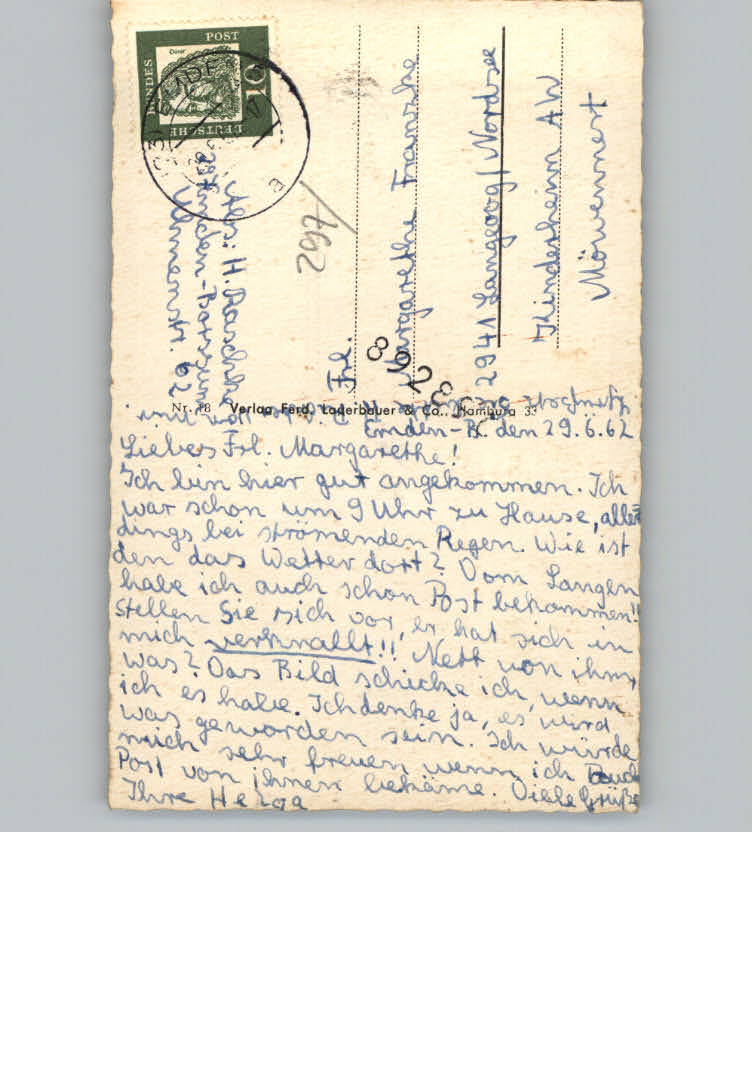 DEUTSCHE
BUNDES
POST
Dürer
10
Abs: H.
Emden-
62
792
Frl.
Margarethe Franzke
2941 Langeoog/Nordsee
Kinderheim AW
Möwennest
8928
Nr. 18 Verlag Ferd. Lagerbauer & Co., Hamburg 33
Emden-B. den 29.6.62
Liebes Frl. Margarethe!
Ich bin hier gut angekommen. Ich
war schon um 9 Uhr zu Hause, aller
dings bei strömenden Regen. Wie ist
den das Wetter dort? Vom Langen
habe ich auch schon Post bekommen!!
Stellen Sie sich vor, er hat sich in
mich verknallt!! Nett von ihm,
was? Das Bild schicke ich, wenn
ich es habe. Ich denke ja, es wird
was geworden sein. Ich würde
mich sehr freuen wenn ich auch
Post von Ihnen bekäme. Viele Grüße
Ihre Helga